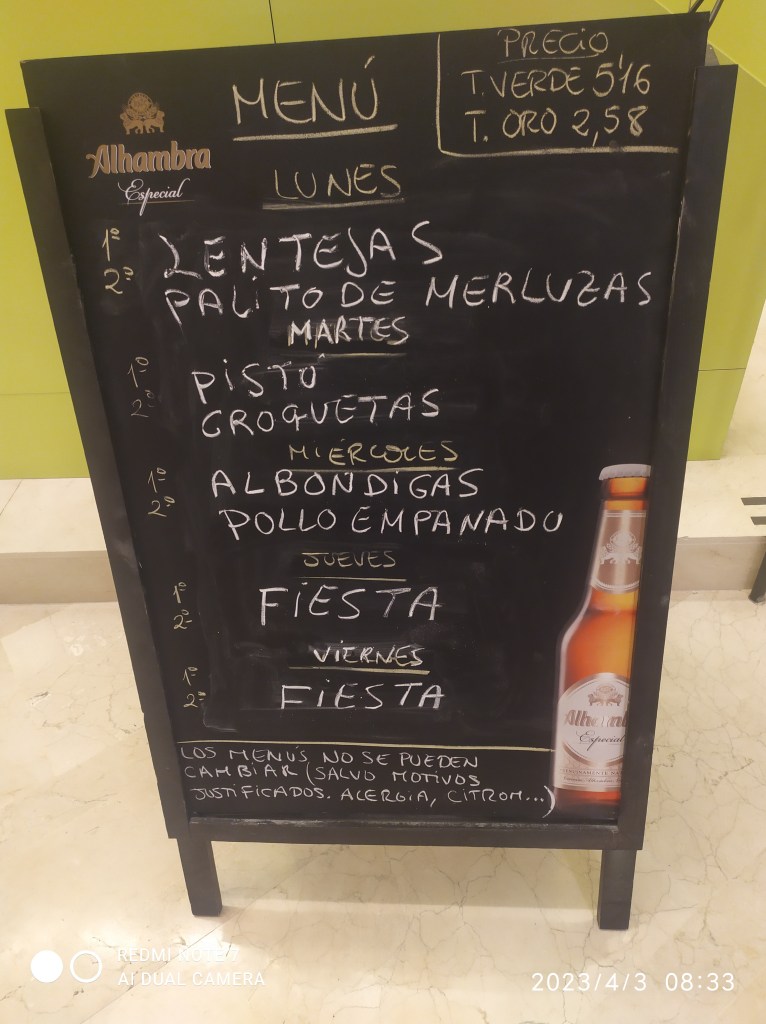 PRECIO
T. VERDE 5'16
T. ORO 2,58
MENÚ
Alhambra
Especial
LUNES
1º LENTEJAS
2º PALITO DE MERLUZAS
MARTES
1º PISTO
2º CROQUETAS
MIÉRCOLES
1º ALBONDIGAS
2º POLLO EMPANADO
JUEVES
1º
2º
FIESTA
VIERNES
1º
2º
FIESTA
Alhambra
Especial
LOS MENÚS NO SE PUEDEN
CAMBIAR (SALVO MOTIVOS
JUSTIFICADOS. ALERGIA, CITROM...)
REDMI NOTE 7
AI DUAL CAMERA
2023/4/3 08:33